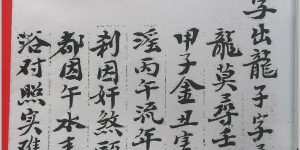 字出龍子字
龍莫尋壬
甲子金丑害
淫丙午流年
刹因奸煞
都因午水
浴对照实难